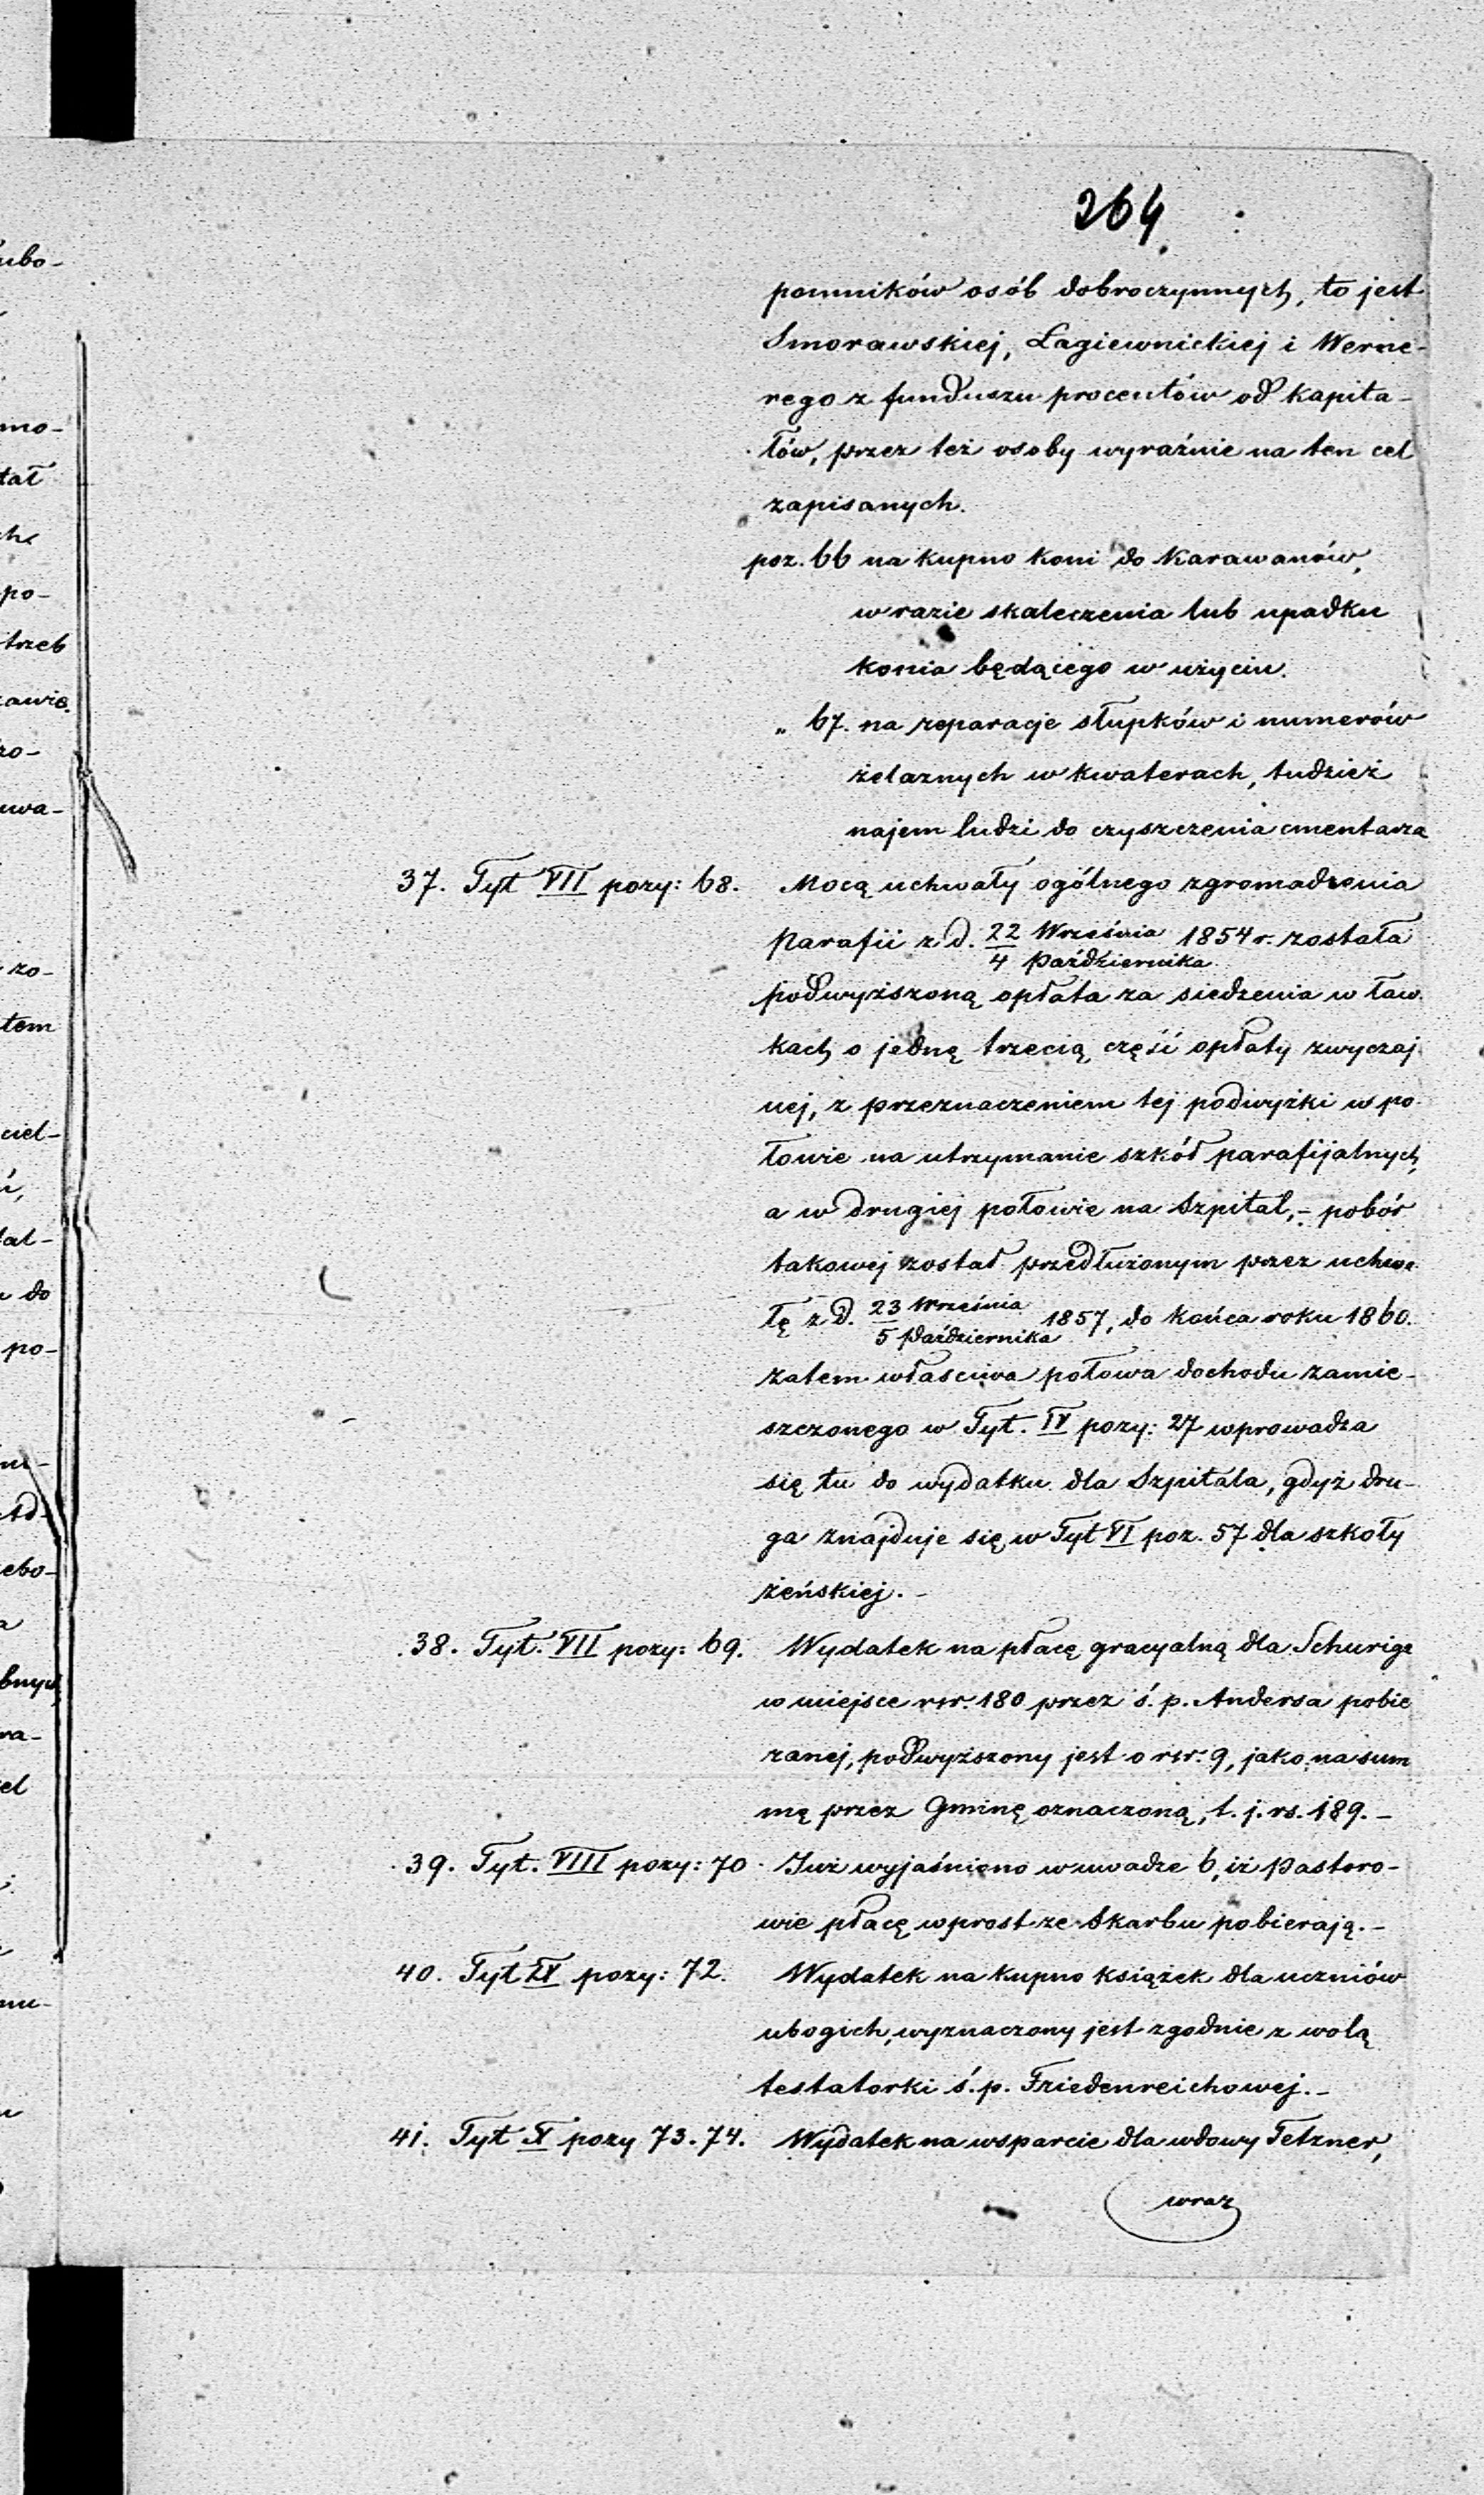 264
pomników osób dobroczynnych, to jest
Smorawskiej, Łagiewnickiej i Werne-
rego z funduszu procentów od kapita-
łów, przez też osoby wyraźnie na ten cel
zapisanych.
poz. 66 na kupno koni do Karawanów,
w razie skaleczenia lub upadku
konia będącego w użyciu.
„ 67. na reparacje słupków i numerów
żelaznych w kwaterach, tudzież
najem ludzi do czyszczenia cmentarza
37. Tyt VII pozy: 68. Mocą uchwały ogólnego zgromadzenia
Parafii z d. 22 Września / 4 Października 1854 r. została
podwyższoną opłata za siedzenia w ław
kach o jedną trzecią część opłaty zwyczaj
nej, z przeznaczeniem tej podwyżki w po
łowie na utrzymanie szkół parafijalnych,
a w drugiej połowie na Szpital, - pobór
takowej został przedłużonym przez uchwa
łę z d. 23 Września / 5 Października 1857, do końca roku 1860.
zatem właściwa połowa dochodu zamie-
szczonego w Tyt. IV pozy: 27 wprowadza
się tu do wydatku dla Szpitala, gdyż dru-
ga znajduje się w Tyt VI poz. 57 dla szkoły
żeńskiej. -
38. Tyt. VII pozy: 69. Wydatek na płacę gracyalną dla Schuriga
w miejsce rsr. 180 przez ś. p. Andersa pobie
ranej, podwyższony jest o rsr. 9, jako na sum
mę przez Gminę oznaczoną, t. j. rs. 189. -
39. Tyt. VIII pozy: 70. Już wyjaśniono w uwadze 6, iż Pastoro-
wie płacę wprost ze Skarbu pobierają. -
40. Tyt IX pozy: 72. Wydatek na kupno książek dla uczniów
ubogich, wyznaczony jest zgodnie z wolą
testatorki ś. p. Friedenreichowej. -
41. Tyt X pozy 73. 74. Wydatek na wsparcie dla wdowy Tetzner,
wraz